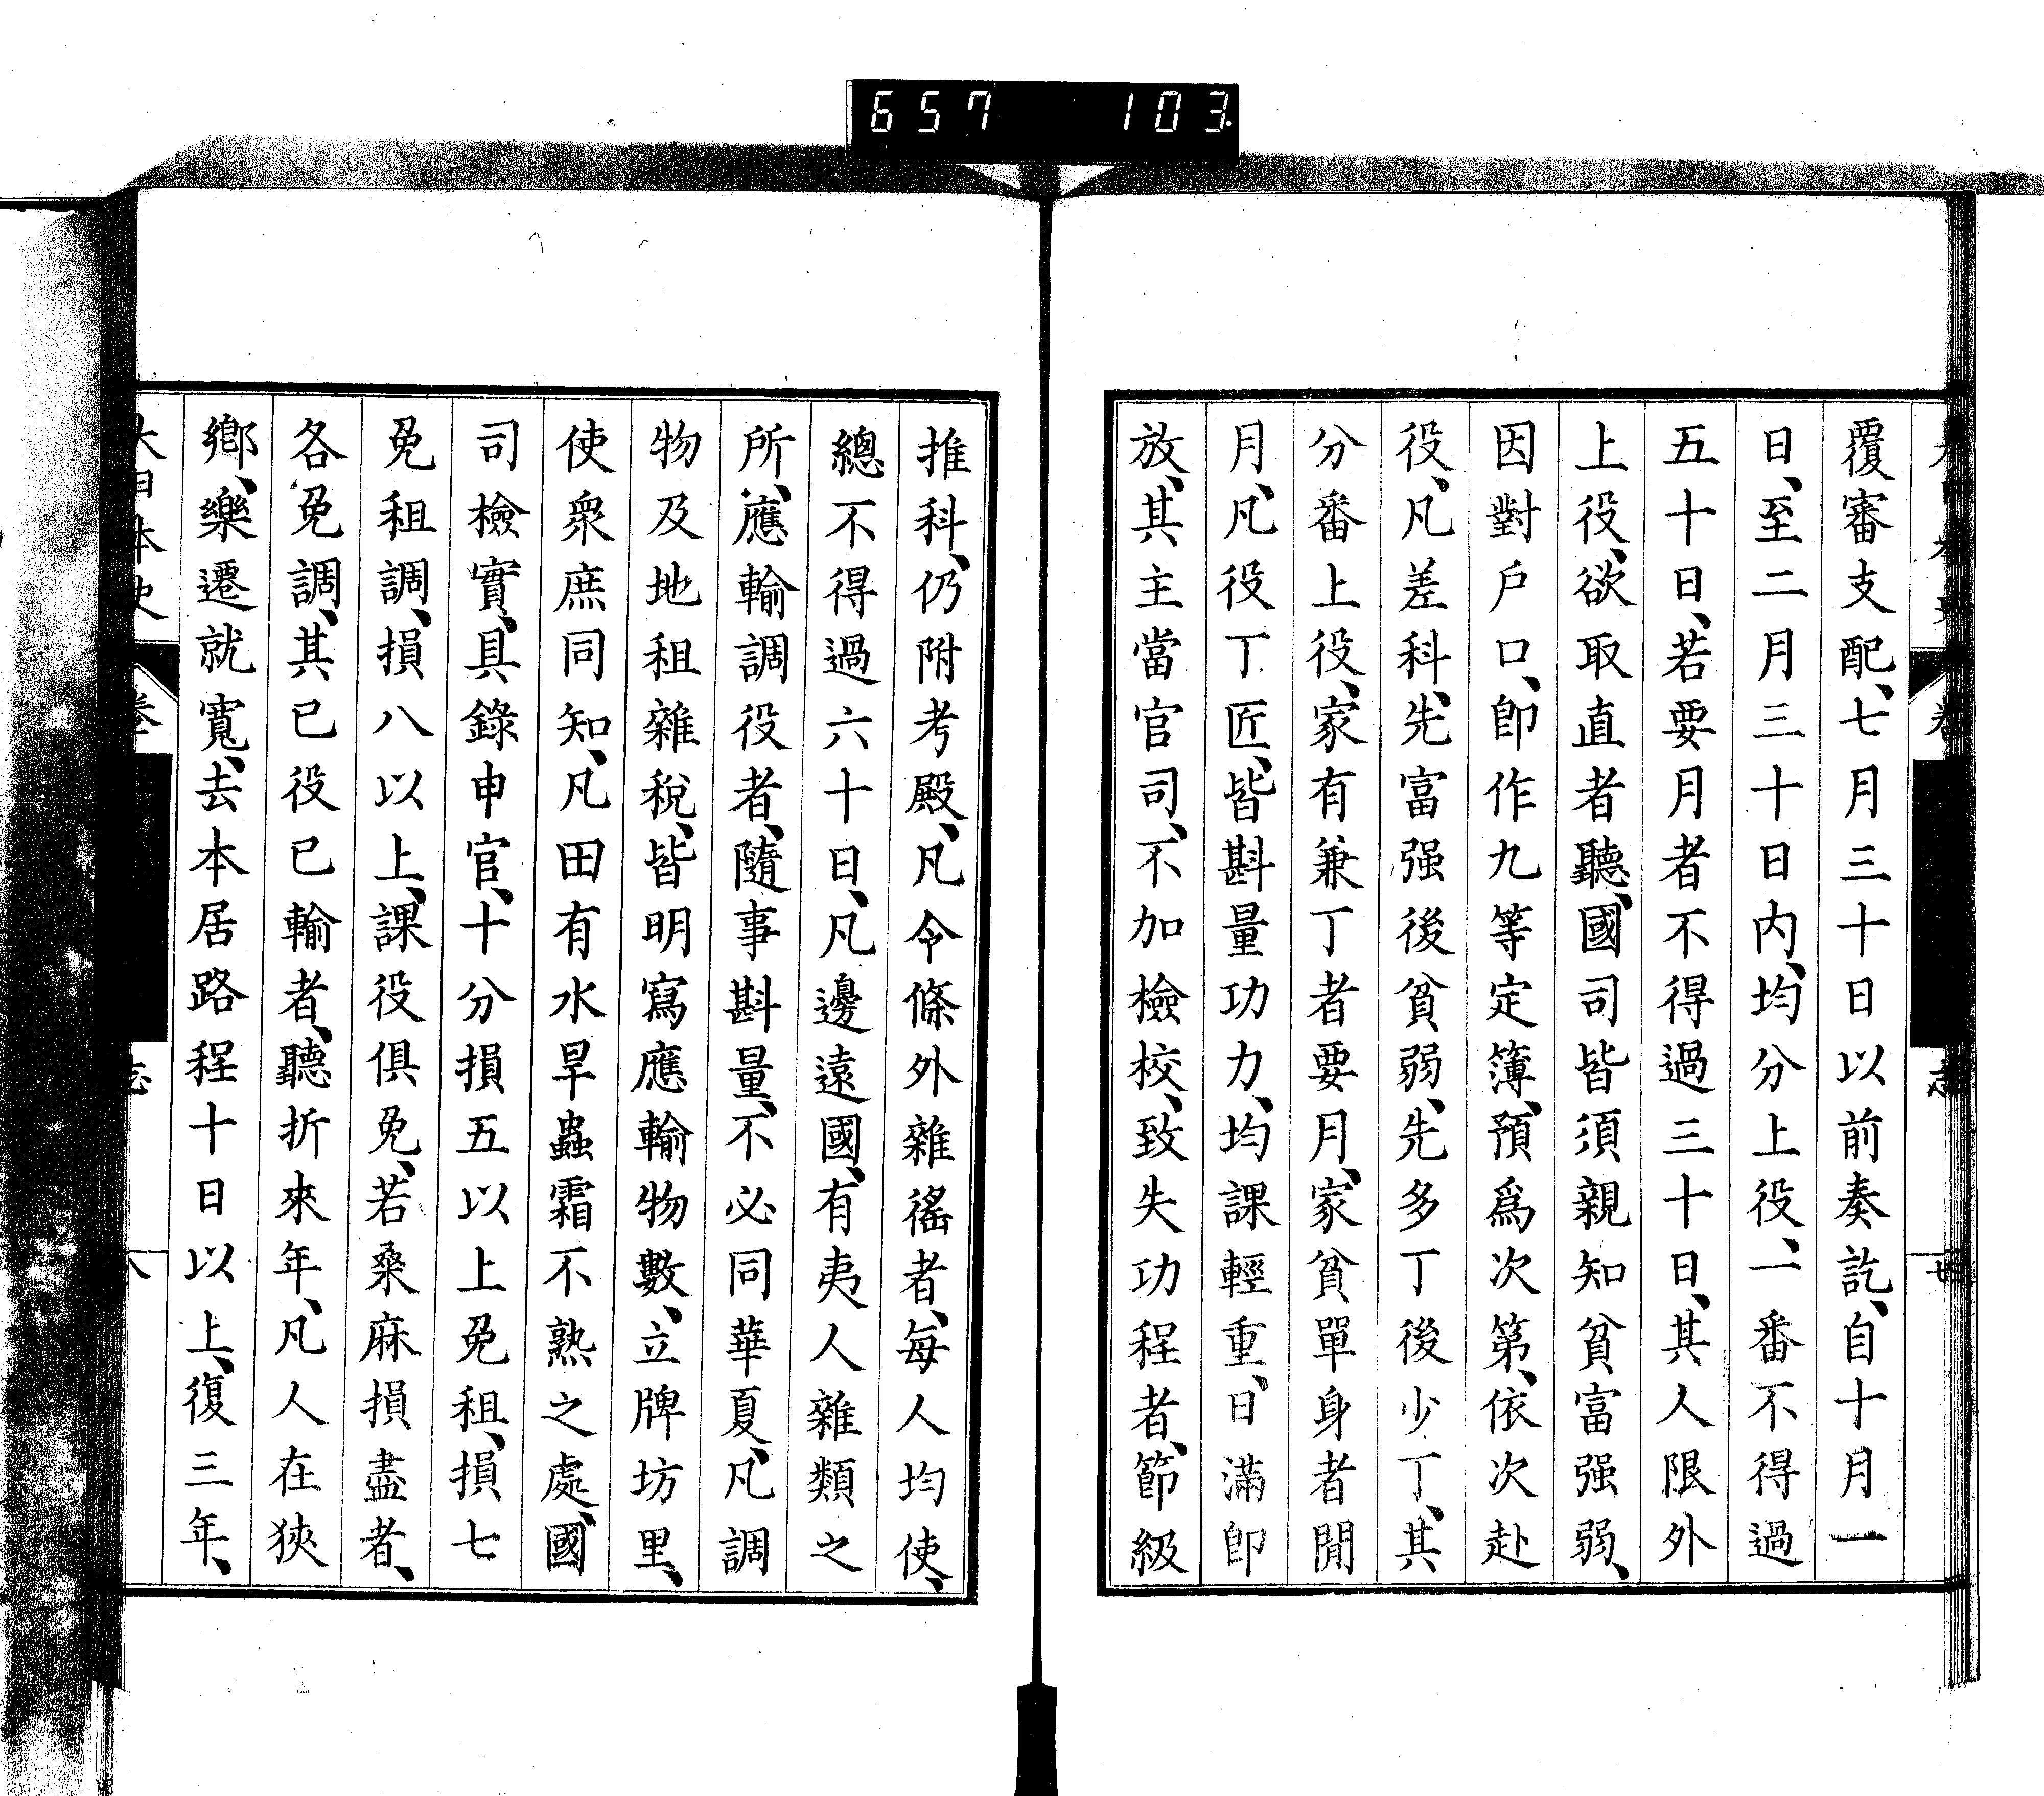 657 103
覆審支配、七月三十日以前奏訖、自十月一
日、至二月三十日内、均分上役、一番不得過
五十日、若要月者不得過三十日、其人限外
上役、欲取直者聽、國司皆須親知貧富强弱、
因對戶口、卽作九等定簿、預爲次第、依次赴
役、凡差科、先富强後貧弱、先多丁後少丁、其
分番上役、家有兼丁者要月、家貧單身者閒
月、凡役丁匠、皆斟量功力、均課輕重、日滿卽
放、其主當官司、不加檢校、致失功程者、節級
推科、仍附考殿、凡令條外雜徭者、每人均使、
總不得過六十日、凡邊遠國、有夷人雜類之
所、應輸調役者、隨事斟量、不必同華夏、凡調
物及地租雜稅、皆明寫應輸物數、立牌坊里、
使衆庶同知、凡田有水旱蟲霜不熟之處、國
司檢實、具錄申官、十分損五以上免租、損七
免租調、損八以上、課役俱免、若桑麻損盡者、
各免調、其已役已輸者、聽折來年、凡人在狹
鄉、樂遷就寬、去本居路程十日以上、復三年、
大日本史 卷 志 八